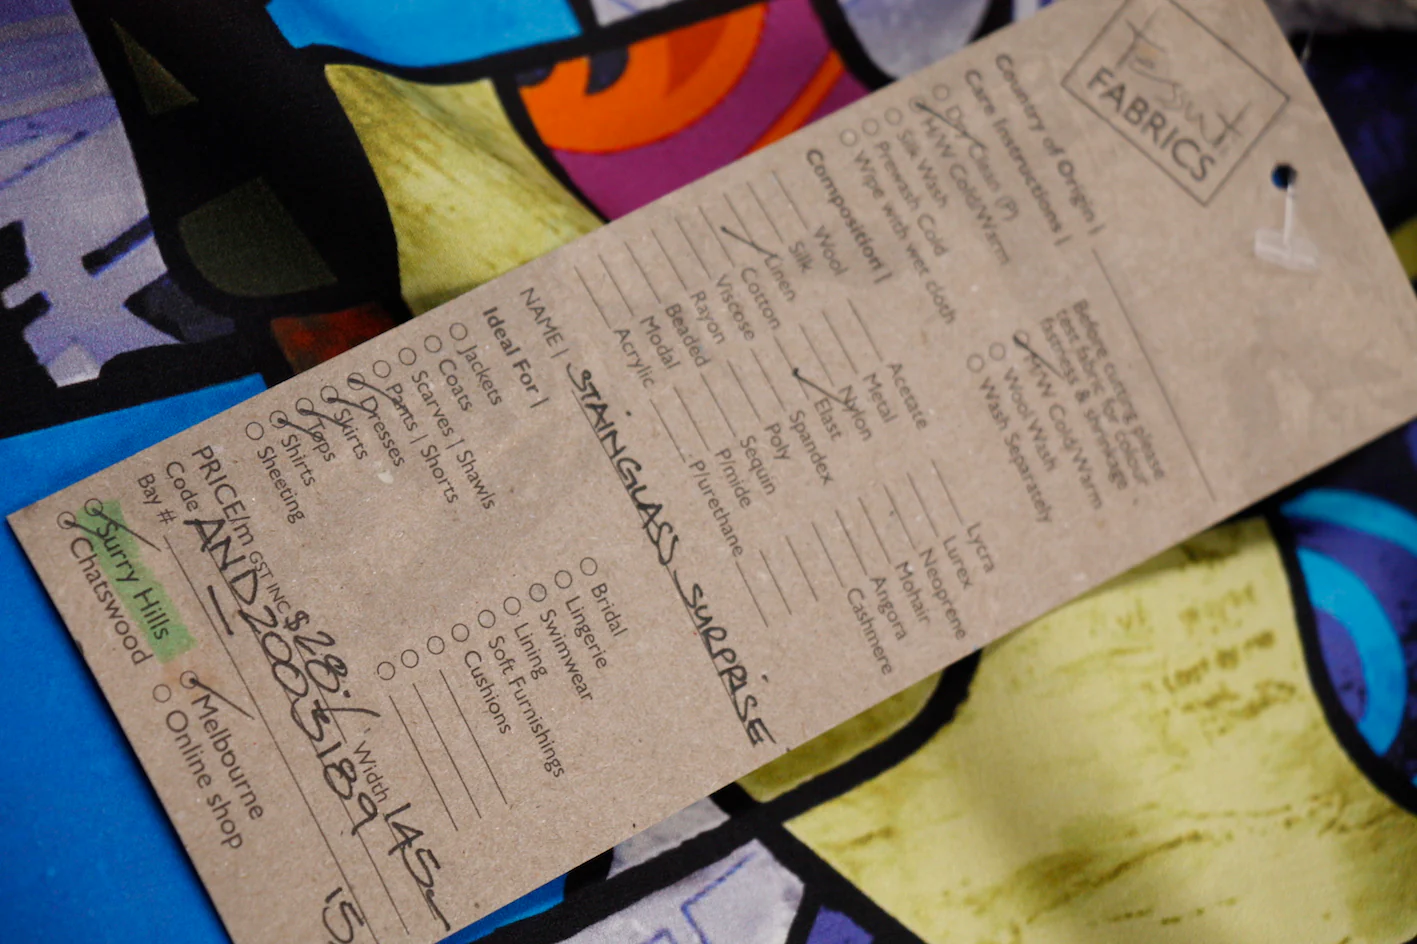 Tessuti
FABRICS
Country of Origin |
Care Instructions |
Dry Clean (P)
H/W Cold/Warm
Silk Wash
Prewash Cold
Wipe with wet cloth
Before cutting please
test fabric for colour
fastness & shrinkage
H/W Cold/Warm
Wool Wash
Wash Separately
Composition |
Wool
Silk
Linen
Cotton
Viscose
Rayon
Beaded
Modal
Acrylic
Acetate
Metal
Nylon
Elast
Spandex
Poly
Sequin
P/nide
P/urethane
Lycra
Lurex
Neoprene
Mohair
Angora
Cashmere
NAME | STAINGLASS SURPRISE
Ideal For |
Jackets
Coats
Scarves | Shawls
Pants | Shorts
Dresses
Skirts
Tops
Shirts
Sheeting
Bridal
Lingerie
Swimwear
Lining
Soft Furnishings
Cushions
PRICE/m GST INC $28./ Width 145
Code AND2003189
Bay # 15
Surry Hills
Chatswood
Melbourne
Online shop